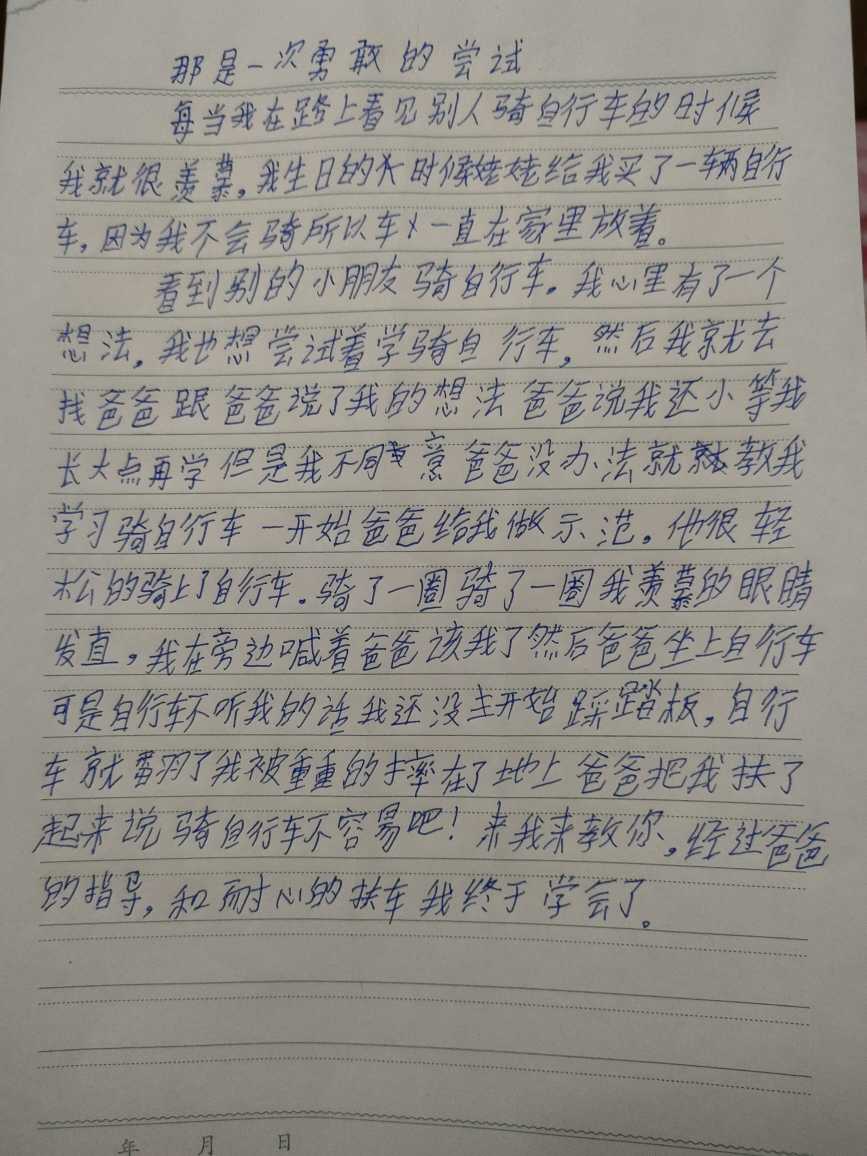 那是一次勇敢的尝试
每当我在路上看见别人骑自行车的时候
我就很羡慕,我生日的时候姥姥给我买了一辆自行
车,因为我不会骑所以车一直在家里放着。
看到别的小朋友骑自行车。我心里有了一个
想法,我也想尝试着学骑自行车,然后我就去
找爸爸跟爸爸说了我的想法爸爸说我还小等我
长大点再学但是我不同意爸爸没办法就教我
学习骑自行车一开始爸爸给我做示范。他很轻
松的骑上了自行车。骑了一圈骑了一圈我羡慕的眼睛
发直,我在旁边喊着爸爸该我了然后爸爸坐上自行车
可是自行车不听我的话我还没开始踩踏板,自行
车就翻了我被重重的摔在了地上爸爸把我扶了
起来说骑自行车不容易吧!来我来教你,经过爸爸
的指导,和耐心的扶车我终于学会了。
年 月 日